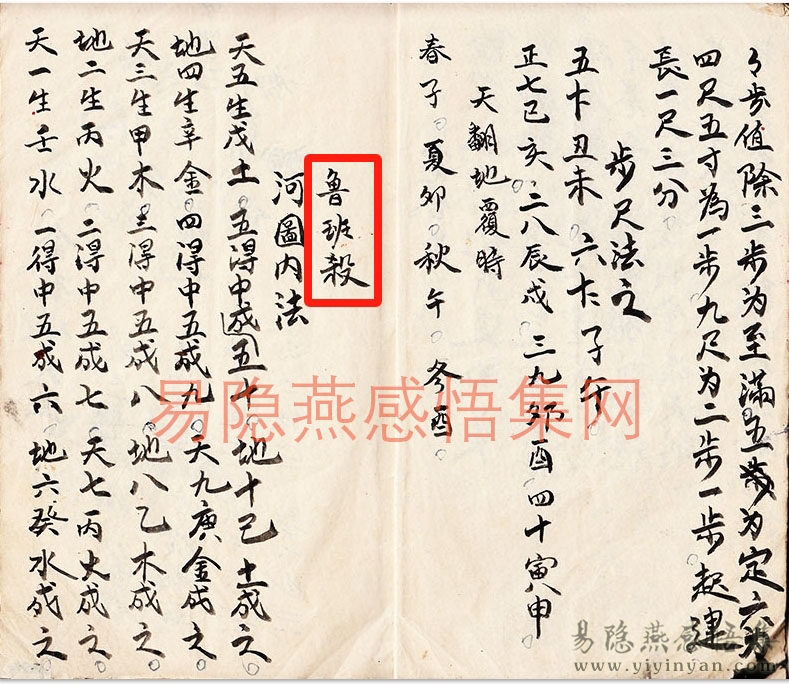 々步值除三步为至滿五步为定六为
四尺五寸為一步九尺为二步一步起建
長一尺三分
步尺法之
五十一丑未。六十二子午。
正七巳亥。二八辰戌 三九夘酉 四十寅申
天翻地覆時
春子。夏夘。秋午。冬酉。
鲁班殺
河圖内法
天五生戊土。五得中成五十。地十己土成之。
地四生辛金。四得中五成九。天九庚金成之。
天三生甲木。三得中五成八。地八乙木成之。
地二生丙火。二得中五成七。天七丙火成之。
天一生壬水。一得中五成六。地六癸水成之。
易隐燕感悟集网
易隐燕感悟集
www.yiyinyan.com